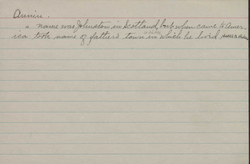 was Johnston in Scotland, but when came to Amer
ica took name of fathers town in which he lived